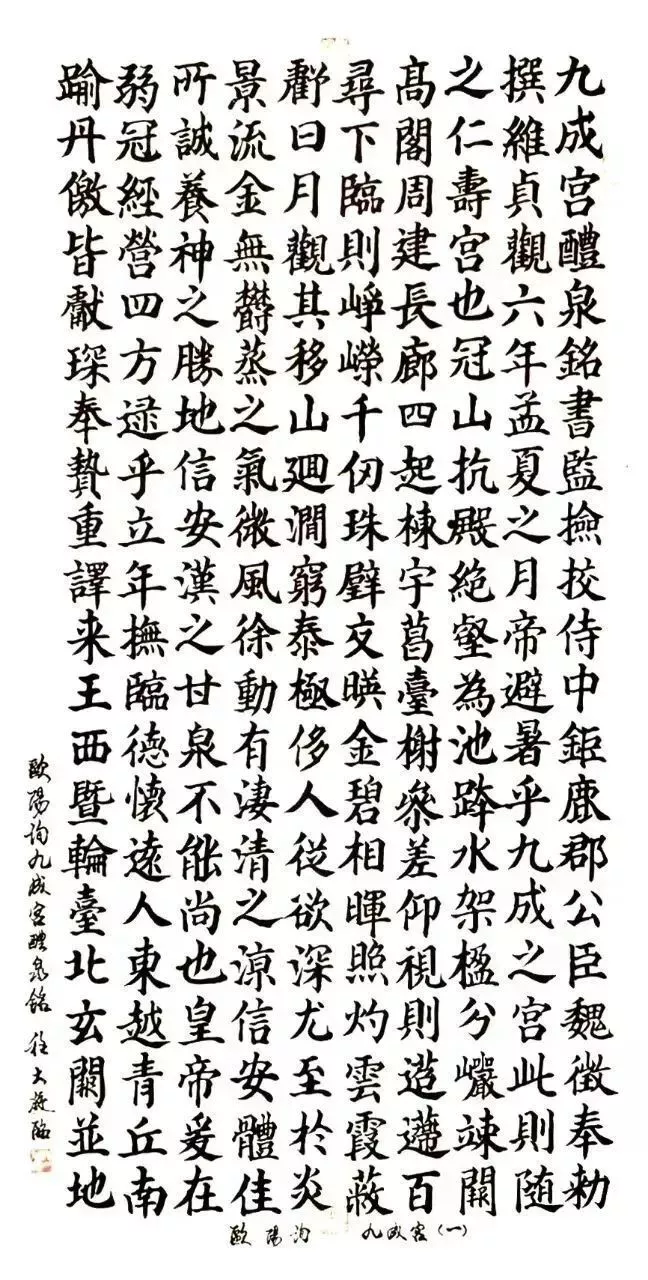 九成宫醴泉銘書監撿挍侍中鉅鹿郡公臣魏徵奉勅
撰維貞觀六年孟夏之月帝避暑乎九成之宫此則随
之仁壽宫也冠山抗殿絶壑為池跨水架楹分巗竦闕
高閣周建長廊四起棟宇菖臺榭叅差仰視則迢遰百
尋下臨則崢嶸千仞珠璧交暎金碧相暉照灼雲霞蔽
虧日月觀其移山廻澗窮泰極侈人從欲深尤至於炎
景流金無欝蒸之氣微風徐動有淒清之凉信安體佳
所誠養神之勝地信安漢之甘泉不能尚也皇帝爰在
弱冠經營四方逮乎立年撫臨德懷遠人東越青丘南
踰丹儌皆獻琛奉贄重譯来王西暨輪臺北玄闕並地
歐陽詢九成宫醴泉銘 大臨
歐陽詢 九成宫(一)